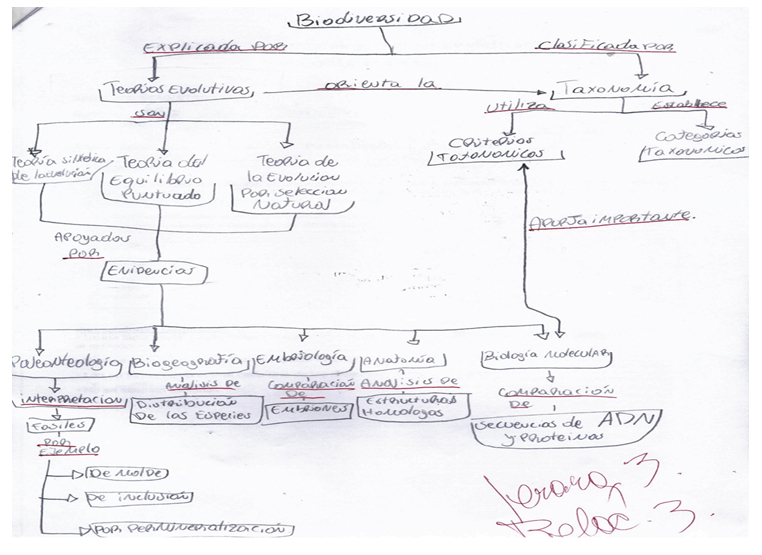 BiodiversiDAD
Explicada por
Clasificada por
Teorias Evolutivas
orienta la
Taxonomía
son
Utiliza
Establece
Teoria sintetica
de la evolución
Teoria del
Equilibrio
Puntuado
Teoria de
la Evolucion
por seleccion
Natural
Criterios
Taxonomicos
Categorias
Taxonomicas
Apoyadas
por
Aporta importante
Evidencias
Paleonteología
Biogeografía
Embriología
Anatomia
Biología molecular
interpretacion
Analisis de
Comparacion
De
Analisis de
Comparacion
De
Fosiles
Distribucion
De las Especies
Embriones
Estructuras
Homologas
secuencias de ADN
y Proteinas
por
Ejemplo
De molde
De inclusion
por permineralización
Jerarq 3.
Relac. 3.